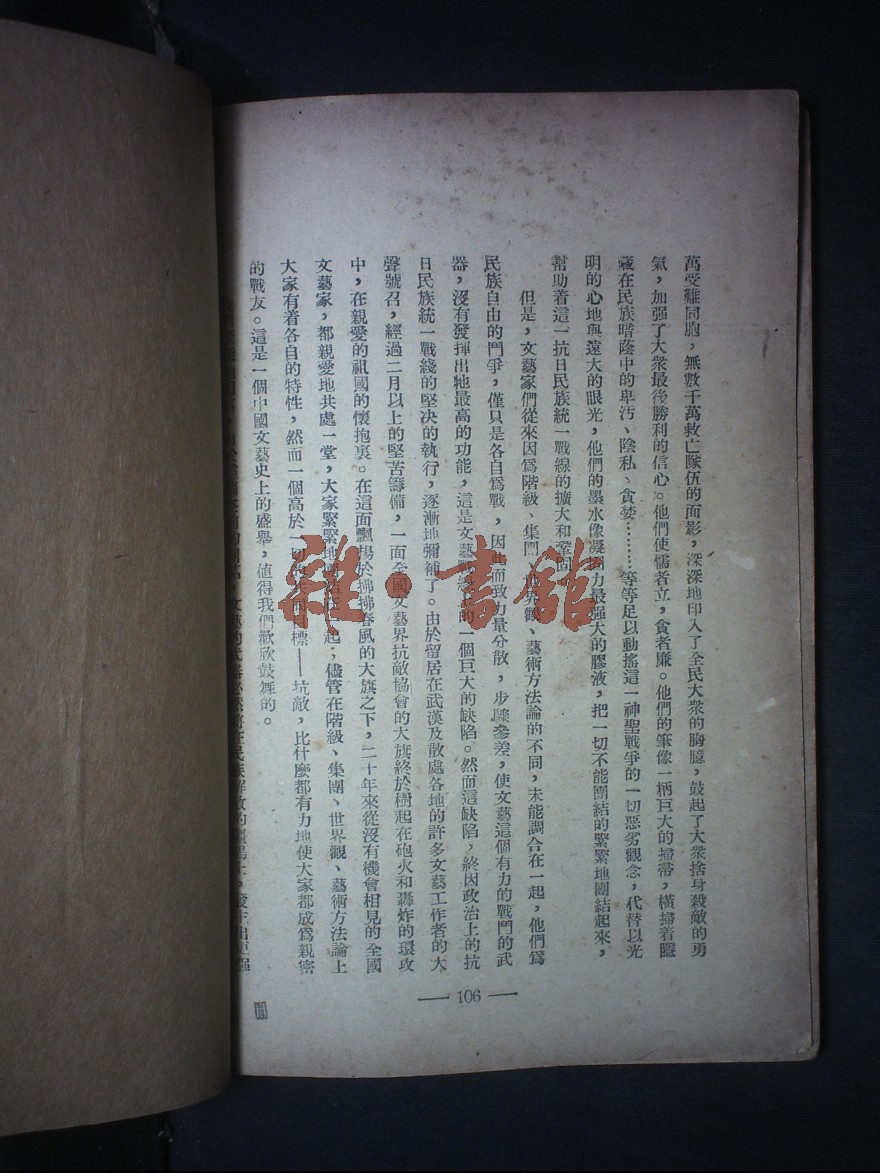 萬受難同胞，無數千萬救亡隊伍的面影，深深地印入了全民大衆的胸臆，鼓起了大衆捨身殺敵的勇
氣，加强了大衆最後勝利的信心。他們使懦者立，貪者廉。他們的筆像一柄巨大的掃帚，橫掃着隱
藏在民族暗蔭中的卑汚、陰私、貪婪………等等足以動搖這一神聖戰爭的一切惡劣觀念，代替以光
明的心地與遠大的眼光，他們的墨水像凝固力最强大的膠液，把一切不能團結的緊緊地團結起來，
幫助着這一抗日民族統一戰線的擴大和鞏固。
但是，文藝家們從來因爲階級、集團、世界觀、藝術方法論的不同，未能調合在一起，他們爲
民族自由的鬥爭，僅只是各自爲戰，因此而致力量分散，步驟參差，使文藝這個有力的戰鬥的武
器，沒有發揮出牠最高的功能，這是文藝戰線上的一個巨大的缺陷。然而這缺陷，終因政治上的抗
日民族統一戰綫的堅决的執行，逐漸地彌補了。由於留居在武漢及散處各地的許多文藝工作者的大
聲號召，經過二月以上的堅苦籌備，一面全國文藝界抗敵協會的大旗終於樹起在砲火和轟炸的環攻
中，在親愛的祖國的懷抱裏。在這面飄揚於拂拂春風的大旗之下，二十年來從沒有機會相見的全國
文藝家，都親愛地共處一堂，大家緊緊地團結在一起；儘管在階級、集團、世界觀、藝術方法論上
大家有着各自的特性，然而一個高於一切的共同目標——抗敵，比什麽都有力地使大家都成爲親密
的戰友。這是一個中國文藝史上的盛舉，值得我們歡欣鼓舞的。
— 106 —
雜·書館